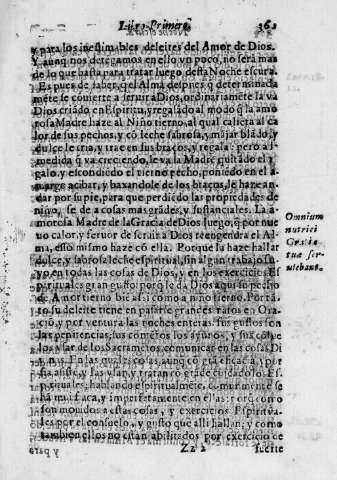 Libro Primero. 361
y para los inestimables deleites del Amor de Dios.
Y aunq nos detegamos en ello vn poco, no será mas
de lo que basta para tratar luego desta Noche escura.
Es pues de saber, q el Alma despues q determinada
mēte se conuierte a seruir a Dios, ordinariamēte la va
Dios criādo en Espiritu, y regalādo al modo q la amo
rosa Madre haze al Niño tierno, al qual calienta al ca
lor de sus pechos, y cō leche sabrosa, y mājar blādo, y
dulce le cria, y trae en sus braços, y regala: pero a la
medida q va creciendo, le va la Madre quitādo el re
galo, y escondiēdo el tierno pecho, poniēdo en el a-
margo acibar, y baxandole de los braços, le haze an-
dar por su pie, para que perdiēdo las propriedades de
niño, se dè a cosas mas grādes, y sustanciales. La a-
morosa Madre de la Gracia de Dios luego, q por nue
uo calor, y feruor de seruir a Dios reengendra el Al-
ma, esso mismo haze cō ella. Porque la haze hallar
dulce, y sabrosa leche espiritual, sin algun trabajo su-
yo en todas las cosas de Dios, y en los exercicios Es-
pirituales gran gusto: porq le dà Dios aqui su pecho
de Amor tierno bie assi como a niño tierno. Portā-
to su deleite tiene en passarse grandes ratos en Ora-
ciō, y por ventura las noches enteras: sus gustos son
las penitencias; sus contētos los ayunos, y sus
los Sacramētos, comunicar en las cosas Di
uinas. En las quales cosas, aunq cō grā eficacia, y por
fia assisten, y las vsan, y tratan cō grāde cuidado los Es
pirituales, hablando espiritualmēte, comunmente se
hā muy flaca, y imperfetamente en ellas: porq como
son mouidos a estas cosas, y exercicios Espiritua-
les por el consuelo, y gusto que alli hallan; y como
tambien ellos no estàn abilitados por exercicio de
Zz 2 fuerte
Omnium
nutrici
Gratiæ
tuæ ser-
uiebant.